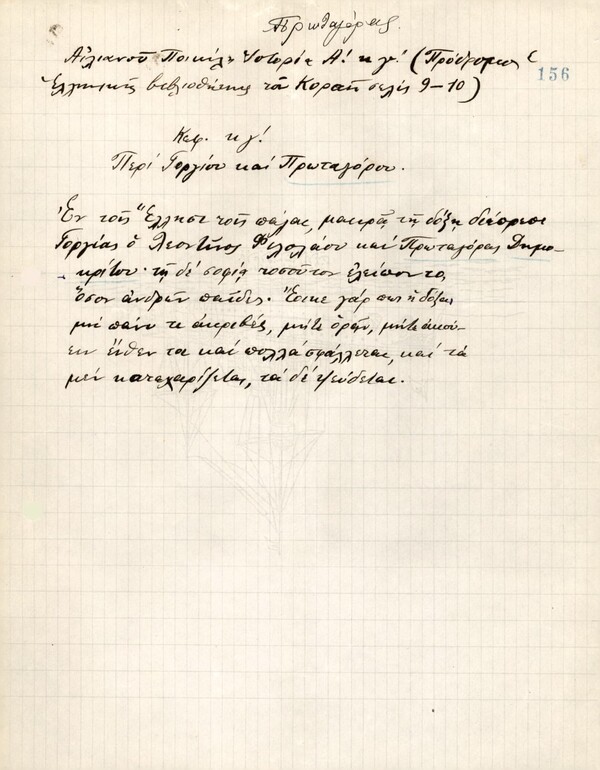 Πρωταγόρας.
Αἰλιανοῦ Ποικίλη Ἱστορία Α! κγ! (Πρόδρομος
156
Ἑλληνικῆς βιβλιοθήκης τοῦ Κοραῆ σελίς 9-10)
Κεφ. κγ!
Περί Γοργίου καί Πρωταγόρου.
Ἐν τοῖς Ἕλλησι τοῖς πάλαι, μακρᾷ τῇ δόξῃ διέπρεπε
Γοργίας ὁ Λεοντῖνος Φιλολάου καί Πρωταγόρας Δημο-
κρίτου· τῇ δέ σοφίᾳ τοσοῦτον ἐλείποντο,
ὅσον ἀνδρῶν παῖδες. Ἔοικε γάρ πως ἡ δόξα
μή πάνυ τι ἀκριβές, μήτε ὁρᾶν, μήτε ἀκού-
ειν ἔνθεν τοι καί πολλά σφάλλεται, καί τά
μέν καταχαρίζεται, τά δέ ψεύδεται.